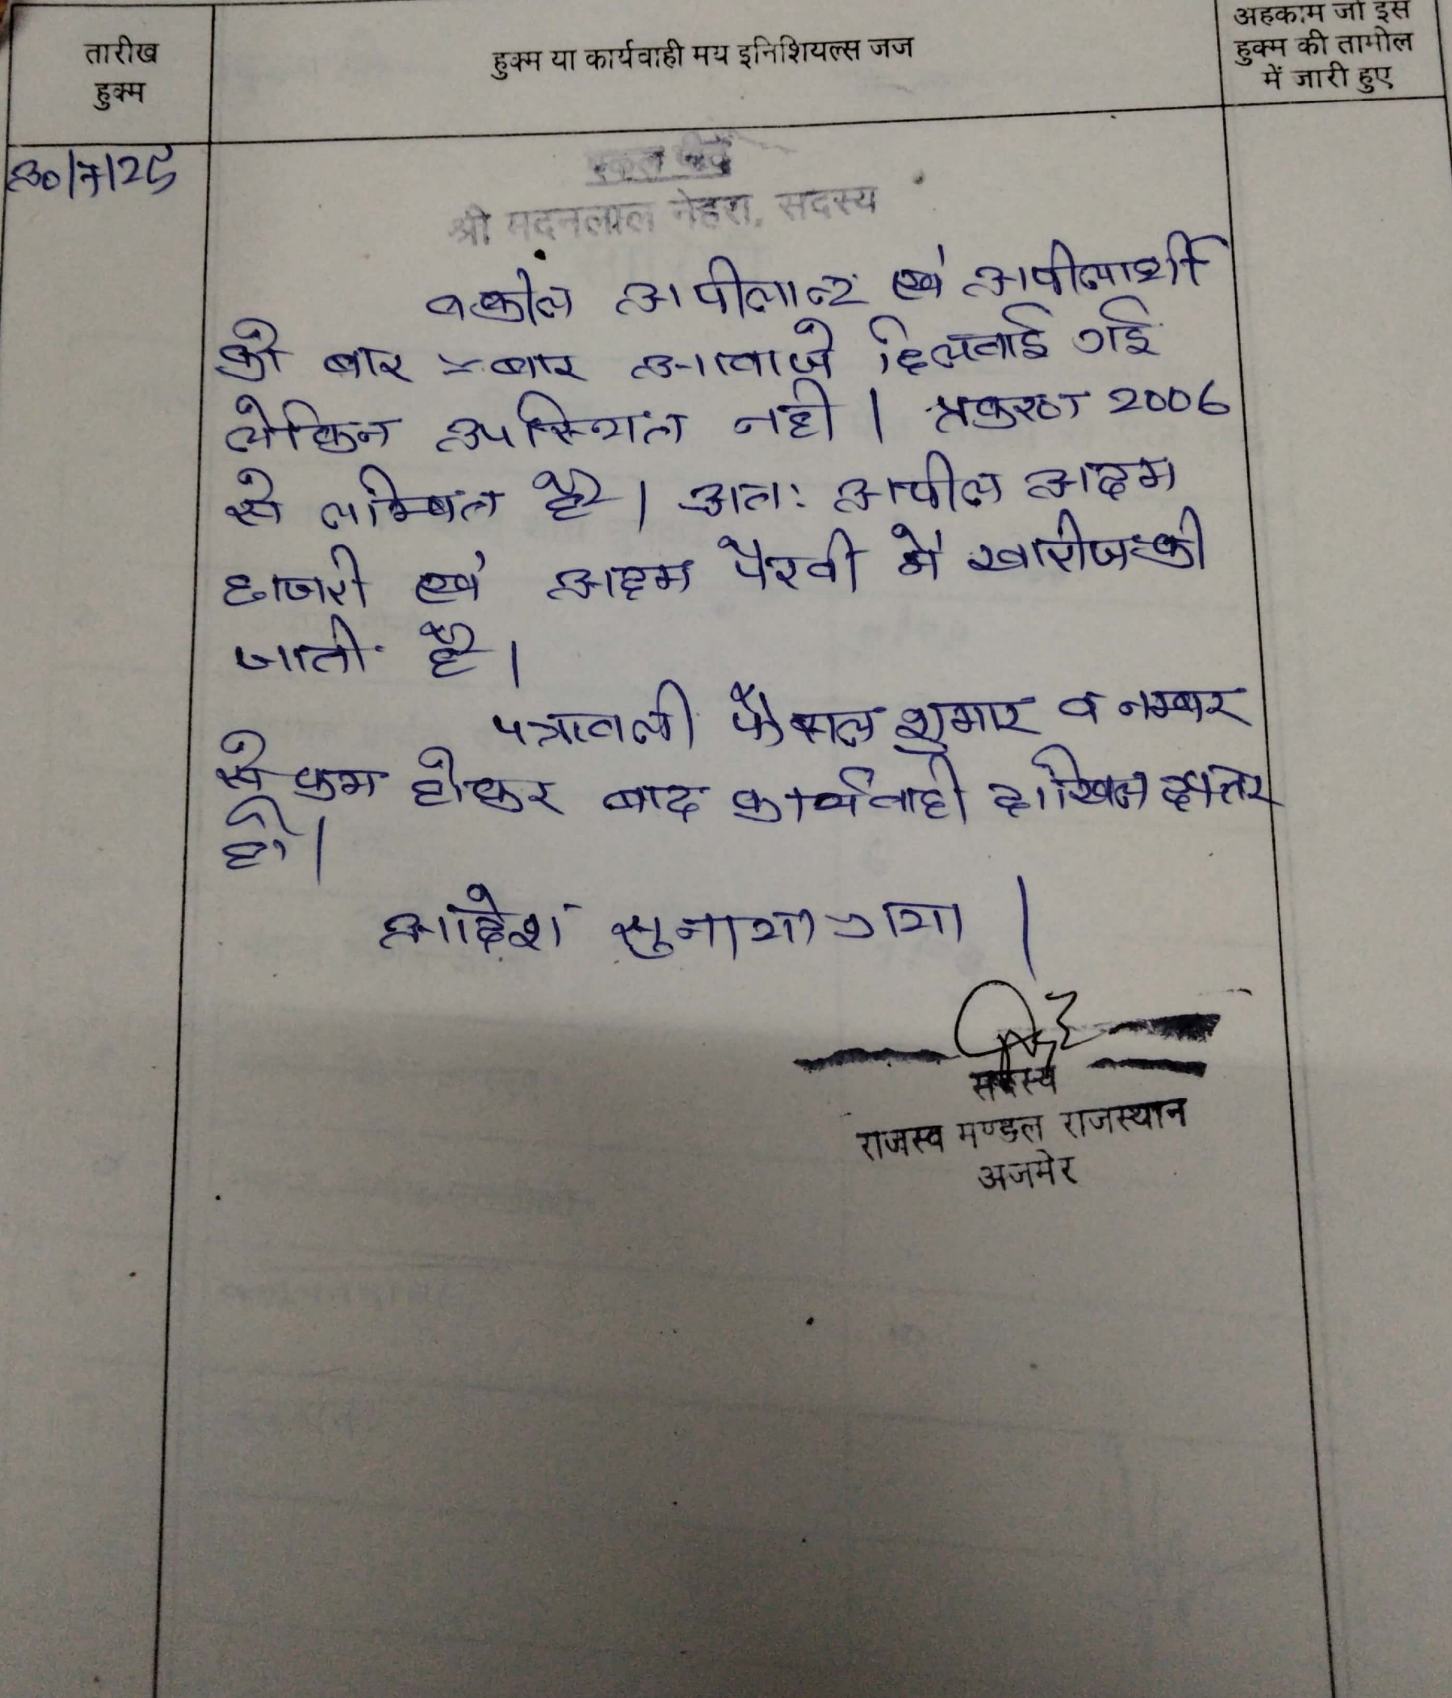 तारीख
हुक्म
हुक्म या कार्यवाही मय इनिशियल्स जज
अहकाम जो इस
हुक्म की तामील
में जारी हुए
30/7/25
एकल पीठ
श्री मदनलाल नेहरा, सदस्य
वकील अपीलान्ट एवं अपीलार्थी
को बार-बार आवाजे दिलवाई गई
लेकिन उपस्थित नही। प्रकरण 2006
से लम्बित है। अतः अपील अदम
हाजरी एवं अदम पैरवी में खारीज की
जाती है।
पत्रावली फैसल शुमार व नम्बर
से कम होकर बाद कार्यवाही दाखिल दफ्तर
हो।
आदेश सुनाया गया।
सदस्य
राजस्व मण्डल राजस्थान
अजमेर